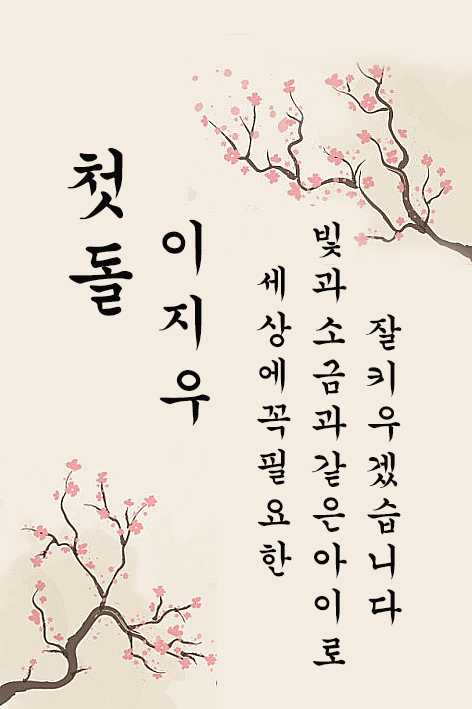 첫돌
이지우
세상에꼭필요한
빛과소금과같은아이로
잘키우겠습니다